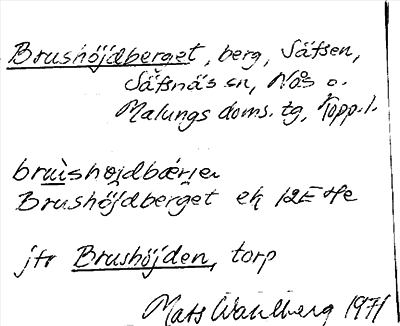 Brushöjdberget, berg, Säfsen,
Säfsnäs sn, Nås o.
Malungs doms. tg, Kopp. l.
bruishöjdbærjer
Brushöjdberget ek 12E 4e
jfr Brushöjden, torp
Mats Wahlberg 1971